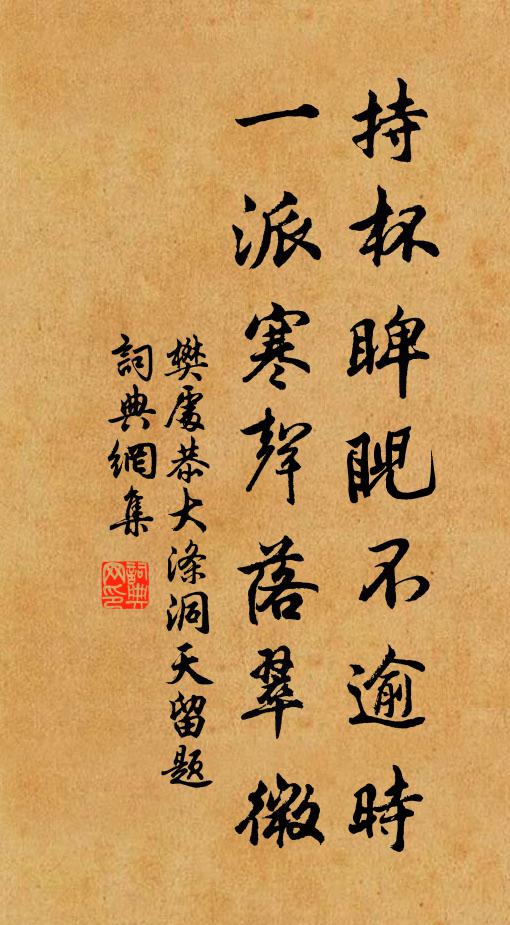 持杯睥睨不逾時
一派寒聲落翠微
樊處恭大滌洞天留題
詞典網集
詞典网印